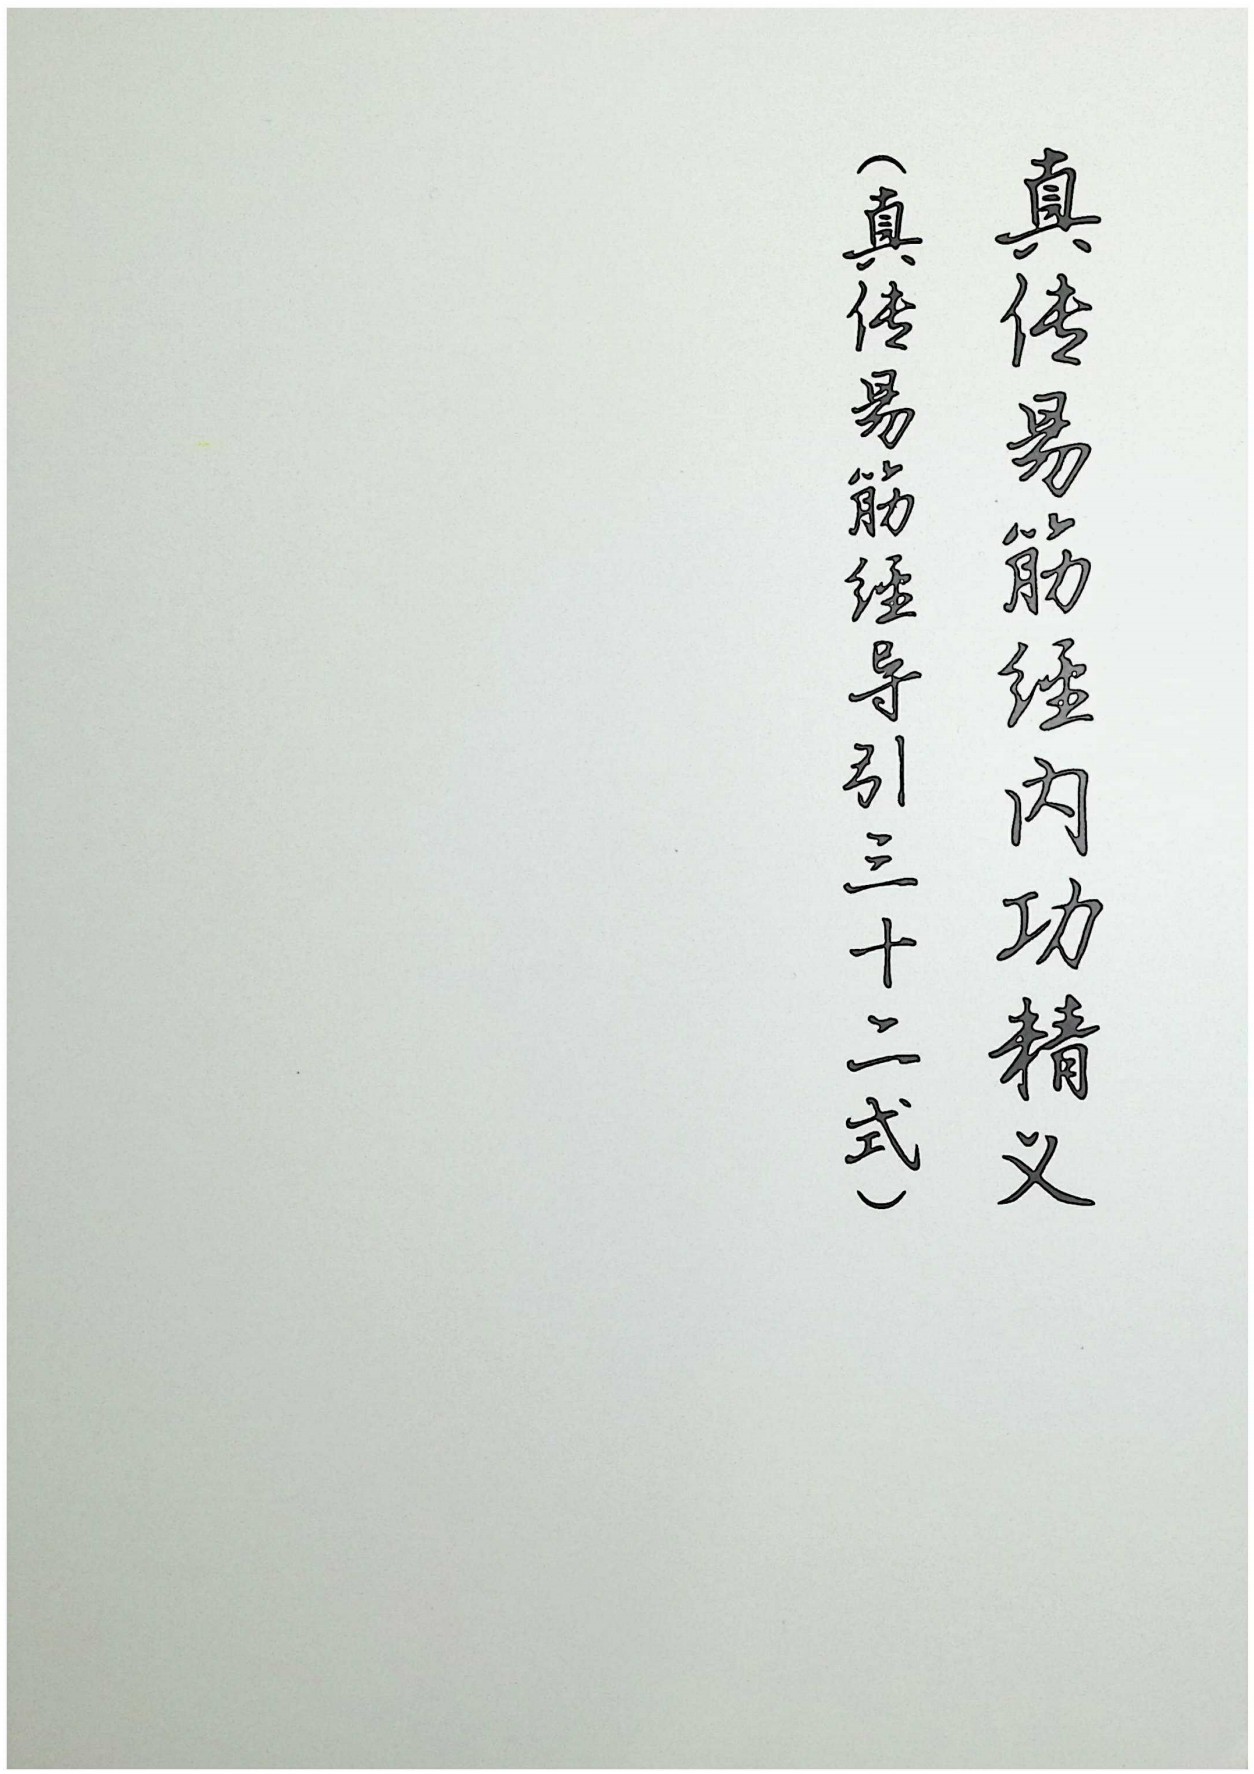 真传易筋经内功精义
（真传易筋经导引三十二式）